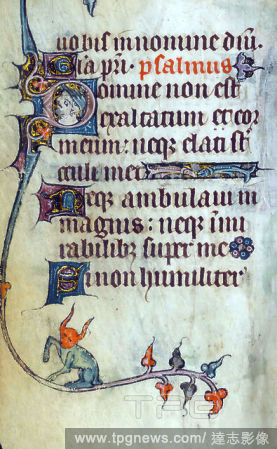 uobis in nomine dni.
Gľa pri. psalmus
Domine non est
exaltatum et cor
meum: neq; elati st
oculi mei
Neq; ambulaui in
magnis: neq; in mi
rabilib; super me
Si non humiliter
TPG
www.tpgnews.com/ 達志影像